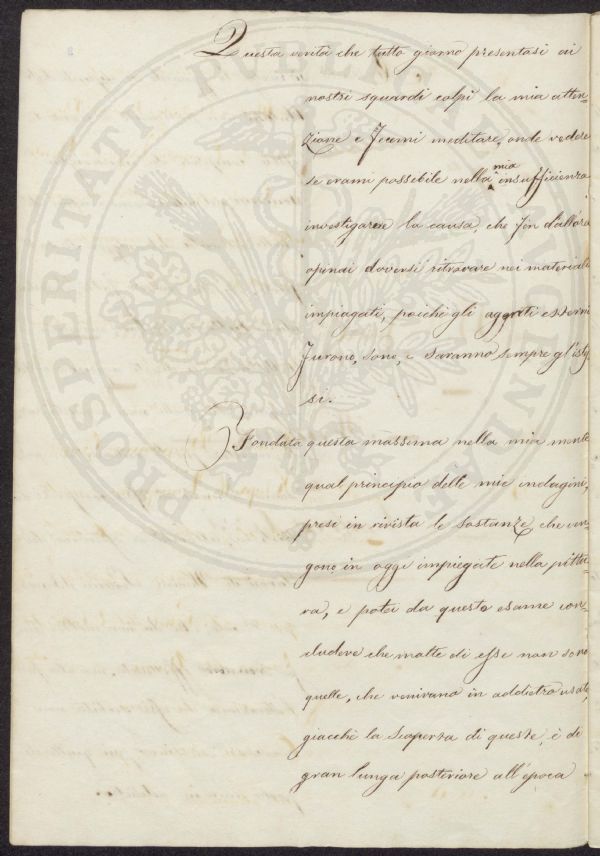 Questa verità che tutto giorno presentasi ai
nostri sguardi colpì la mia atten-
zione e fecemi meditare, onde vedere
se erami possibile nella mia insufficienza
investigarne la causa, che fin d'allora
opinai doversi ritrovare nei materiali
impiegati, poichè gli agenti esterni
furono, sono, e saranno sempre gl'istes-
si.
Fondata questa massima nella mia mente
qual principio delle mie indagini,
presi in rivista le sostanze, che ven-
gono in oggi impiegate nella pittu-
ra, e potei da questo esame con-
cludere che molte di esse non sono
quelle, che venivano in addietro usate,
giacchè la scoperta di queste, è di
gran lunga posteriore all'epoca
PROSPERITATI PUBLICAE